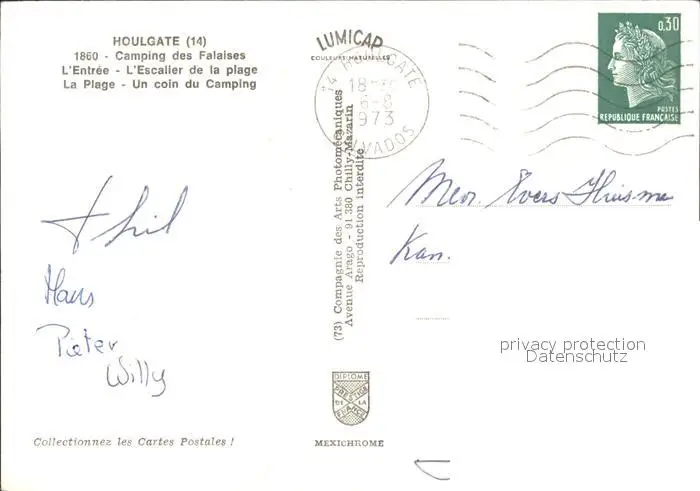 HOULGATE (14)
1860 - Camping des Falaises
L'Entrée - L'Escalier de la plage
La Plage - Un coin du Camping
LUMICAP
COULEURS NATURELLES
14 HOULGATE
18-
6-8
1973
CALVADOS
0,30
POSTES
REPUBLIQUE FRANÇAISE
(73) Compagnie des Arts Photomécaniques
Avenue Arago - 91 380 Chilly-Mazarin
Reproduction interdite
Mevr. Evers Huisma
Kan.
Phil
Hans
Pieter
Willy
privacy protection
Datenschutz
DIPLOME
PRESTIGE
DE LA
FRANCE
Collectionnez les Cartes Postales !
MEXICHROME